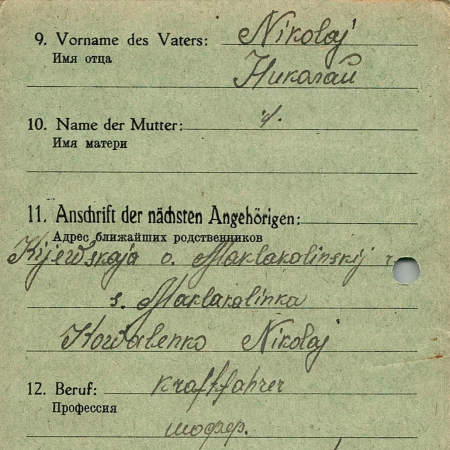 9. Vorname des Vaters: Nikolaj
Имя отца
Николай
10. Name der Mutter:
Имя матери
11. Anschrift der nächsten Angehörigen:
Адрес ближайших родственников
Kijewskaja o. Maklakolinskij r.
s. Maklakolinka
Kowalenko Nikolaj
12. Beruf: Kraftfahrer
Профессия
шофер.